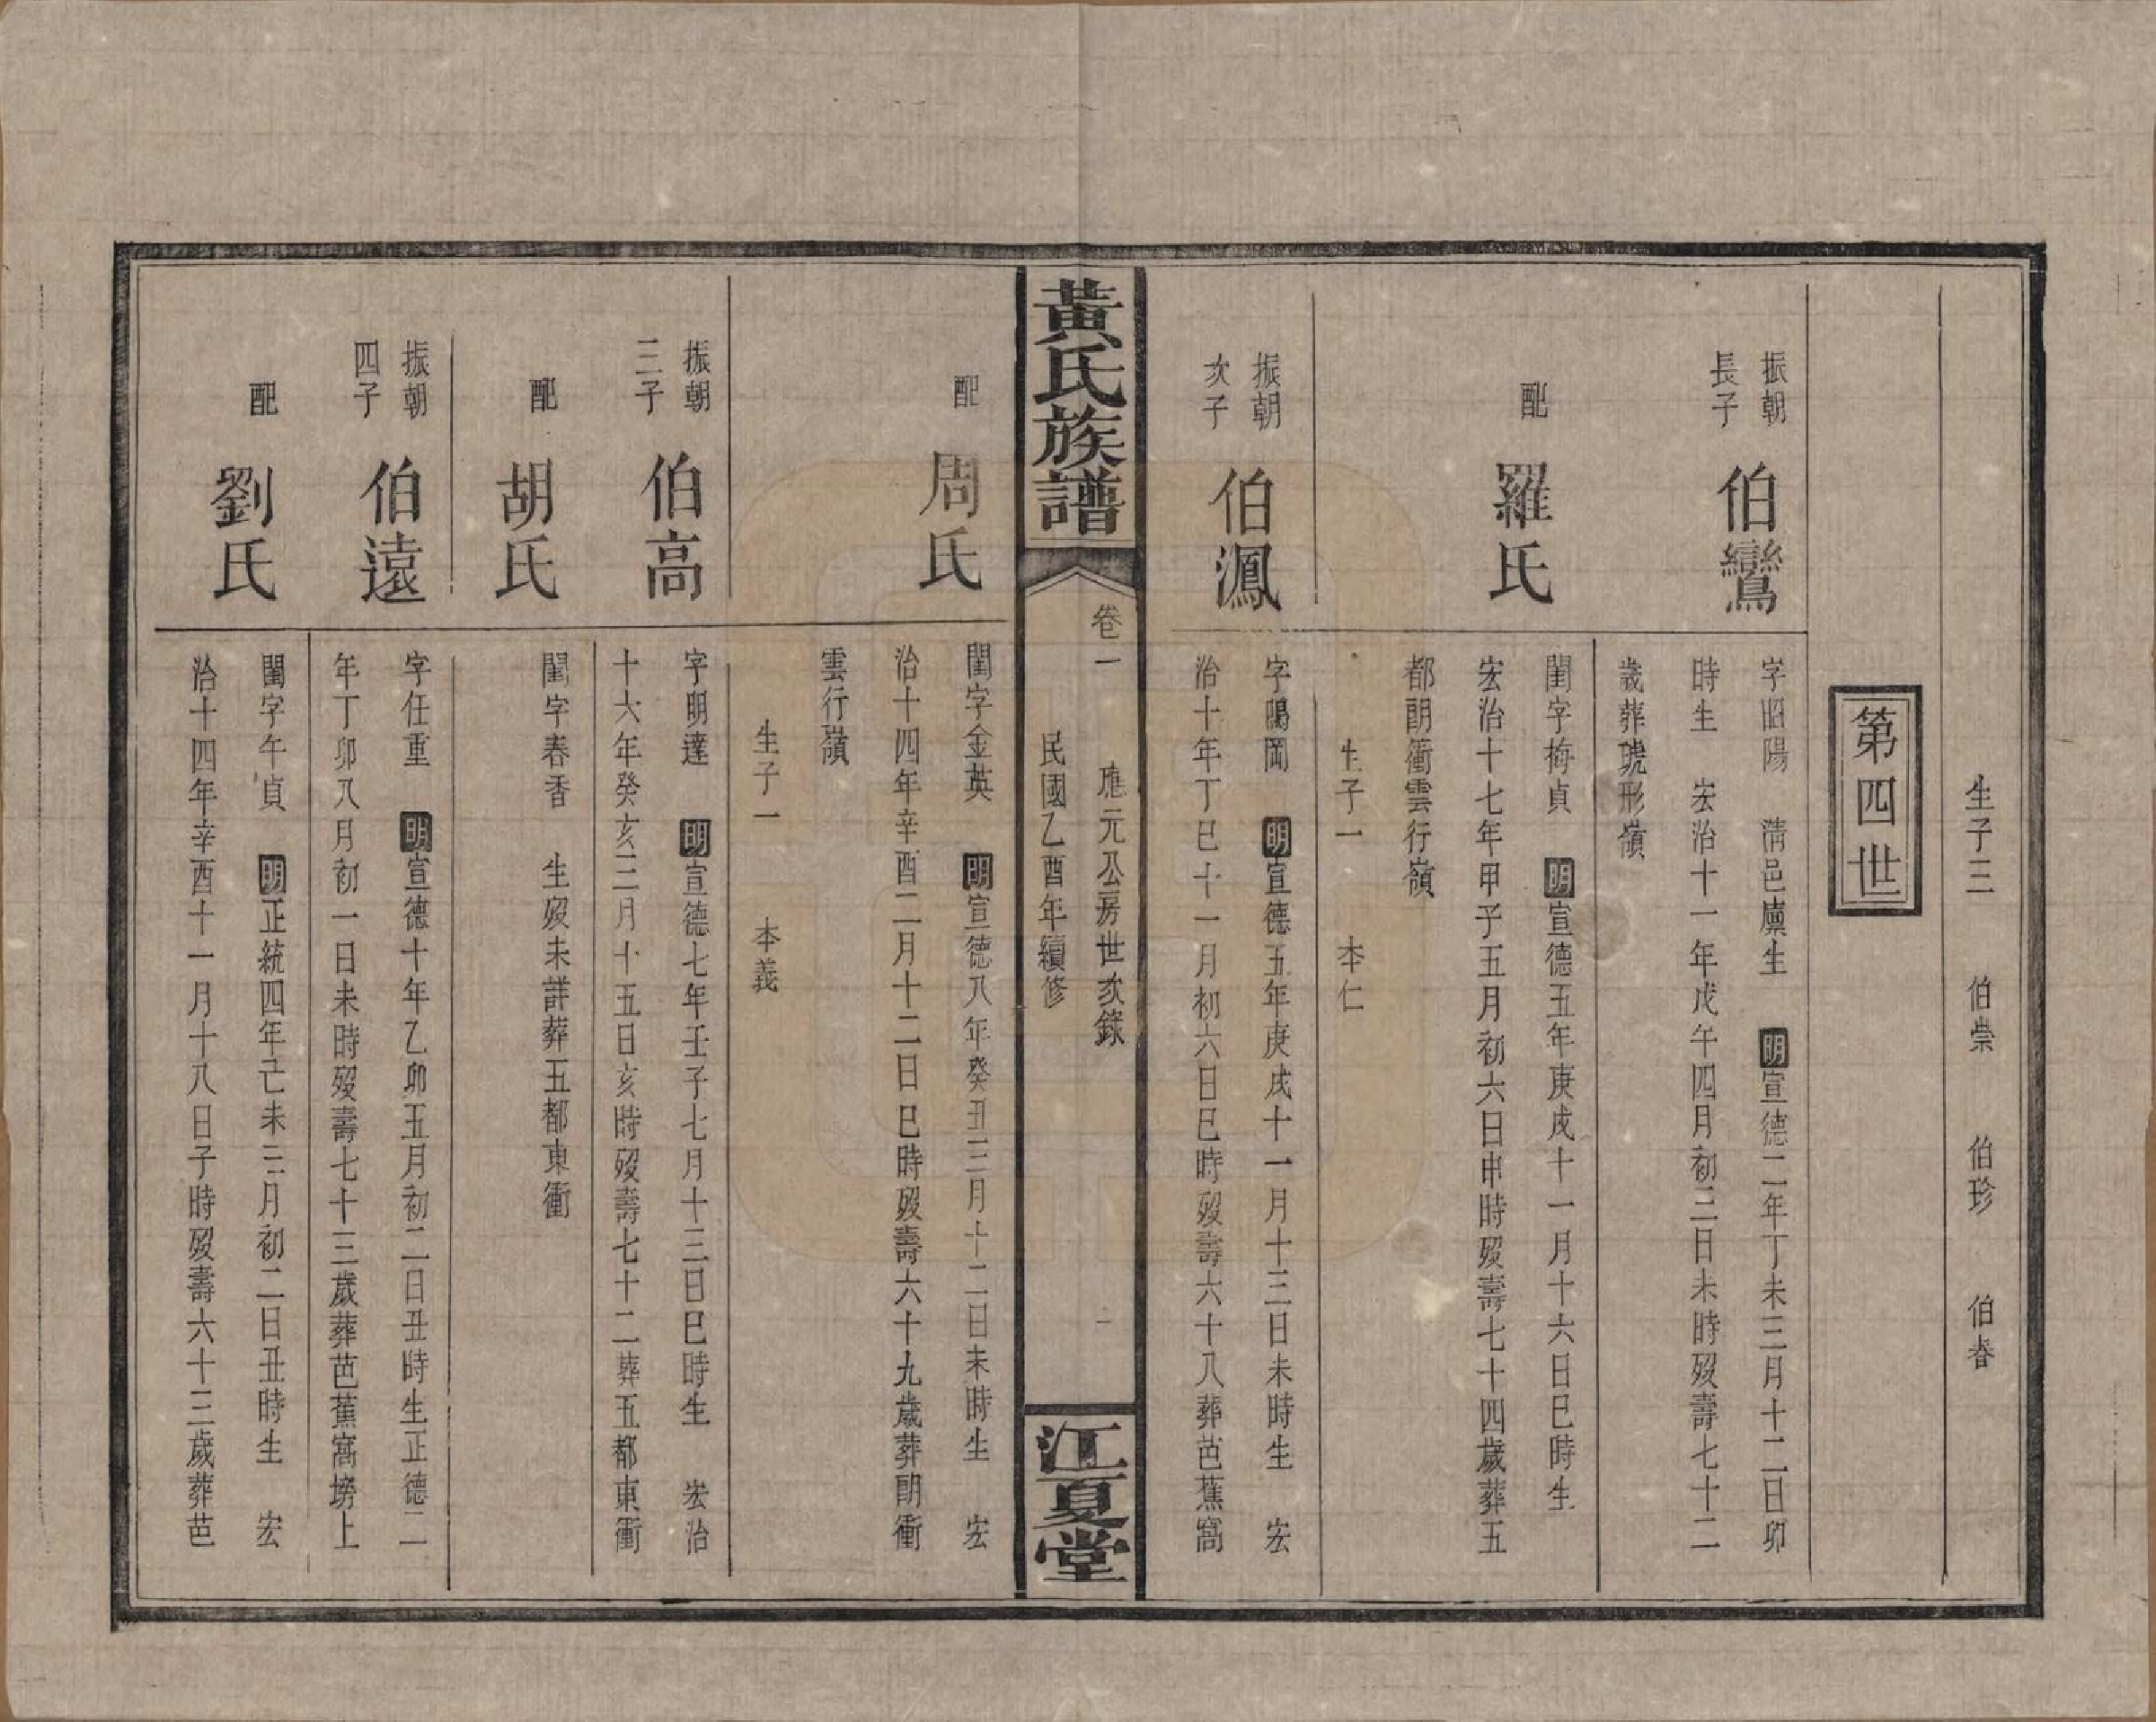 生子三　伯崇　伯珍　伯春
第四世
振朝長子　伯鸞
字昭陽　清邑廩生　明宣德二年丁未三月十二日卯
時生　宏治十一年戊午四月初三日未時歿壽七十二
歲葬琥形嶺
配　羅氏
閨字梅貞　明宣德五年庚戌十一月十六日巳時生
宏治十七年甲子五月初六日申時歿壽七十四歲葬五
都朗衝雲行嶺
生子一　本仁
振朝次子　伯鳳
字鳴岡　明宣德五年庚戌十一月十三日未時生　宏
治十年丁巳十一月初六日巳時歿壽六十八葬芭蕉窩
黃氏族譜
卷一
應元公房世次錄
民國乙酉年續修
江夏堂
配　周氏
閨字金英　明宣德八年癸丑三月十二日未時生　宏
治十四年辛酉二月十二日巳時歿壽六十九歲葬朗衝
雲行嶺
生子一　本義
振朝三子　伯高
字明達　明宣德七年壬子七月十三日巳時生　宏治
十六年癸亥三月十五日亥時歿壽七十二葬五都東衝
配　胡氏
閨字春香　生歿未詳葬五都東衝
振朝四子　伯遠
字任重　明宣德十年乙卯五月初二日丑時生正德二
年丁卯八月初一日未時歿壽七十三歲葬芭蕉窩塝上
配　劉氏
閨字午貞　明正統四年己未三月初二日丑時生　宏
治十四年辛酉十一月十八日子時歿壽六十三歲葬芭